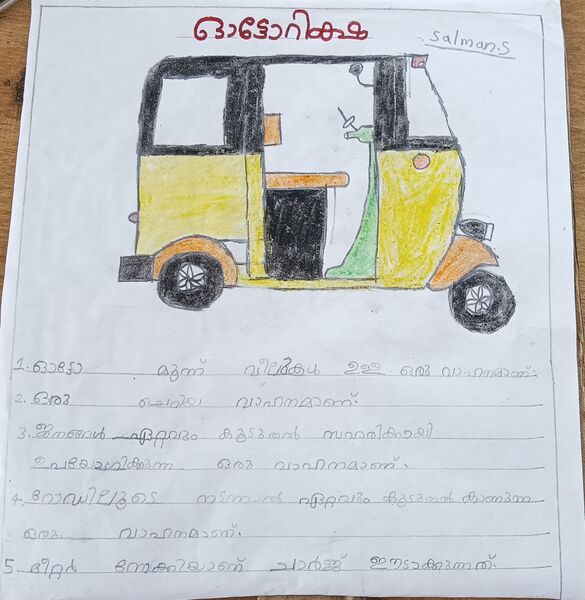 ഓട്ടോറിക്ഷ
Salman.S
1. ഓട്ടോ മൂന്ന് വീലർകൾ ഉള്ള ഒരു വാഹനമാണ്.
2. ഒരു ചെറിയ വാഹനമാണ്.
3. ജനങ്ങൾ ഏറ്റവും കൂടുതൽ സവാരിക്കായി
ഉപയോഗിക്കുന്ന ഒരു വാഹനമാണ്.
4. റോഡിലൂടെ നടന്നാൽ ഏറ്റവും കൂടുതൽ കാണുന്ന
ഒരു വാഹനമാണ്.
5. മീറ്റർ നോക്കിയാണ് ചാർജ് ഈടാക്കുന്നത്.